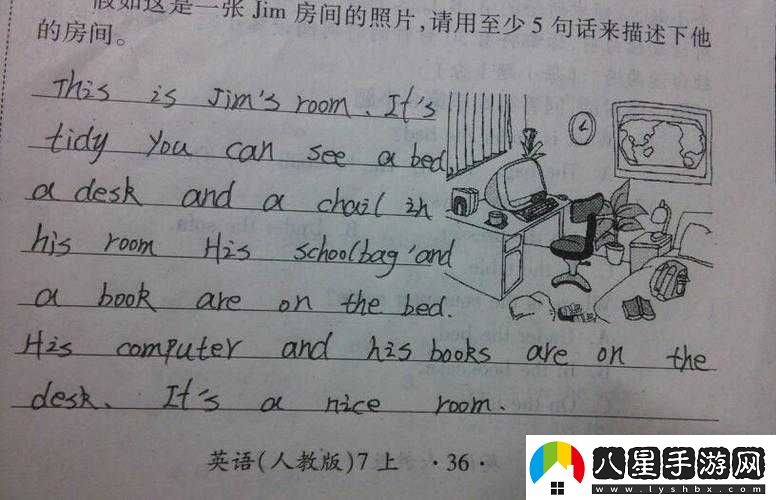 假如这是一张 Jim 房间的照片,请用至少 5 句话来描述下他
的房间。
This is Jim's room. It's
tidy You can see a bed,
a desk and a chail in
his room His schoolbag and
a book are on the bed.
His computer and his books are on the
desk. It's a nice room.
英语(人教版)7 上 ·36·
八星手游网
www.lyshbx.com